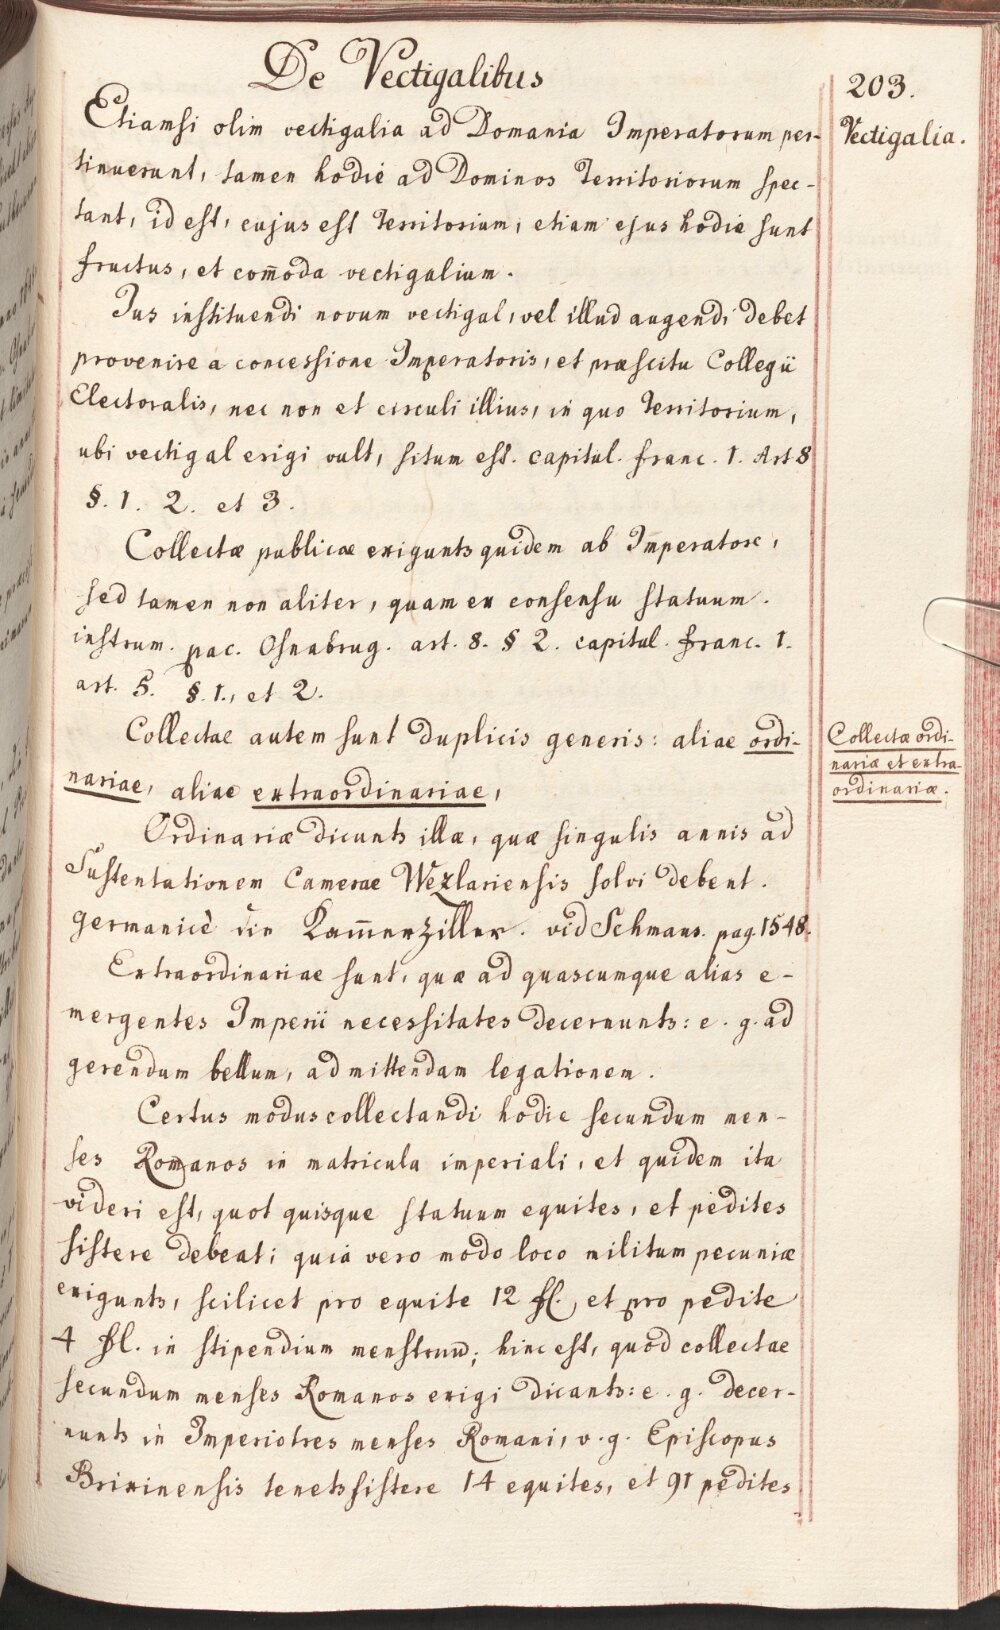 De Vectigalibus
203.
Etiamsi olim vectigalia ad Domania Imperatorum per-
Vectigalia.
tinuerunt, tamen hodiè ad Dominos Territoriorum spec-
tant, id est, cujus est Territorium, etiam ejus hodie sunt
fructus, et com̄oda vectigalium.
Jus instituendi novum vectigal, vel illud augendi debet
provenire a concessione Imperatoris, et præscitu Collegii
Electoralis, nec non et circuli illius, in quo Territorium,
ubi vectigal erigi vult, situm est. capitul. franc. 1. Art 8
§. 1. 2. et 3.
Collectæ publicæ exigunts quidem ab Imperatore,
sed tamen non aliter, quam ex consensu statuum.
instrum. pac. Osnabrug. art. 8. § 2. capitul. franc. 1.
art. 5. §. 1., et 2.
Collectae autem sunt duplicis generis: aliae ordi-
nariae, aliae extraordinariae,
Collectæ ordi-
nariæ et extra-
ordinariæ.
Ordinariæ dicunts illæ, quæ singulis annis ad
Sustentationem Camerae Wezlariensis solvi debent.
germanicè die Kam̄erziller. vid Schmaus. pag. 1548.
Extraordinariae sunt, quæ ad quascumque alias e-
mergentes Imperii necessitates decernunts: e. g. ad
gerendum bellum, ad mittendam legationem.
Certus modus collectandi hodie secundum men-
ses Romanos in matricula imperiali, et quidem ita
videri est, quot quisque statuum equites, et pedites
sistere debeat; quia vero modo loco militum pecuniæ
exigunts, scilicet pro equite 12 fl., et pro pedite
4 fl. in stipendium menstruum; hinc est, quod collectae
secundum menses Romanos exigi dicants: e. g. decer-
nunts in Imperio tres menses Romani, v. g. Episcopus
Brixinensis tenets sistere 14 equites, et 91 pedites